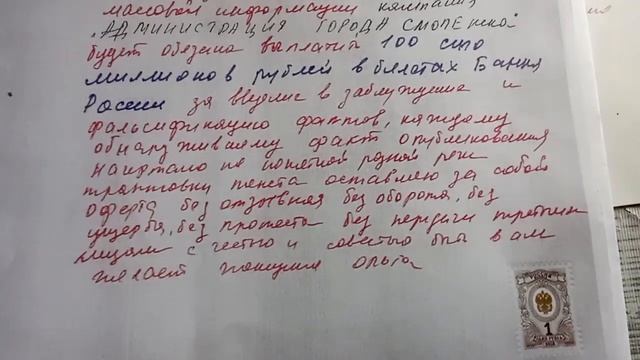 массовой информации кампания
"АДМИНИСТРАЦИЯ ГОРОДА СМОЛЕНСКА"
будет обязана выплатить 100 сто
миллионов рублей в билетах Банка
России за введение в заблуждение и
фальсификацию фактов, каждому
обнаружившему факт опубликования
на родной речи
трактовку текста оставляю за собой
оферта безотзывная без оборота, без
ущерба, без протеста без передачи третьим
лицам с честью и совестью вам
желает женщина Ольга
РОССИЯ
1